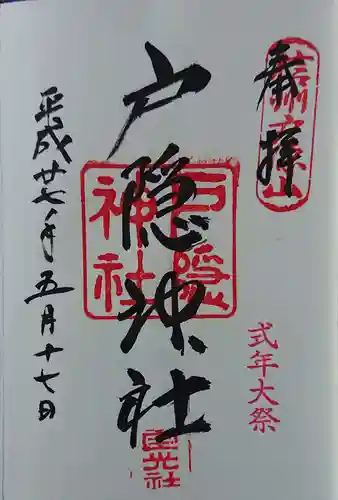 奉拝
式年大祭
戸隠神社
戸隠
神社
平成廿七年五月十七日